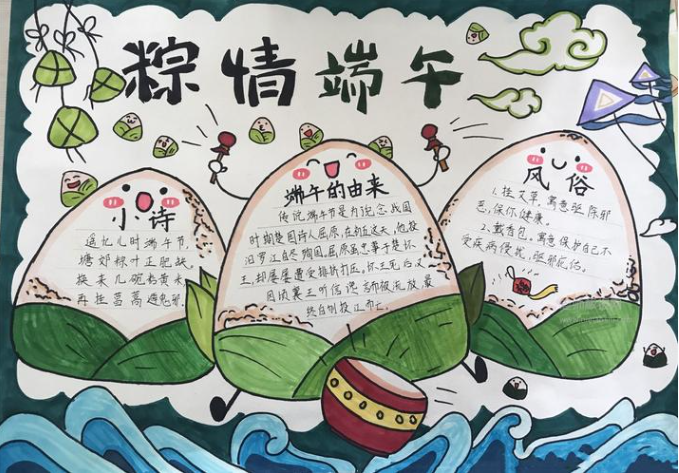 粽情端午
小诗
追忆儿时端午节,
塘郊粽叶正肥缺。
换来几碗杨黄米,
再挂菖蒿通电邪.
端午的由来
传说端午节是为纪念战国
时期楚国诗人屈原,在初五这天,他投
汨罗江自尽殉国,屈原虽忠事于楚怀
王,却屡屡遭受排挤打压,怀王死后又
因顷襄王听信谗言而被流放,最
终自刎投江而亡。
风俗
1.挂艾草,寓意驱除邪
恶,保你健康。
2.戴香包,寓意保护自己不
受疾病侵扰,驱邪